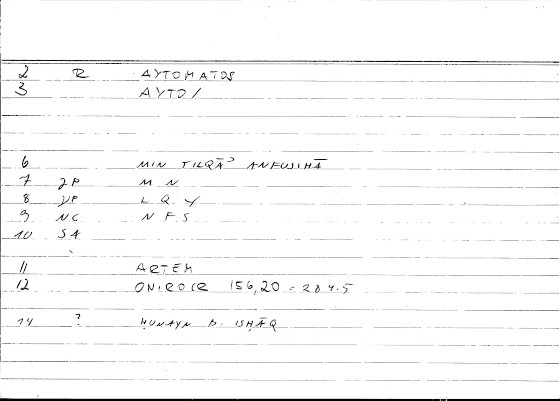 2 R AYTOMATOS
3 AYTO/
6 MIN TILQĀʾ ANFUSIHĀ
7 2P M N
8 VP L Q Y
9 NC N F S
10 SA
11 ARTEM
12 ONIROCR 156,20 = 284.5
14 ? ḤUNAYN B. ISḤĀQ